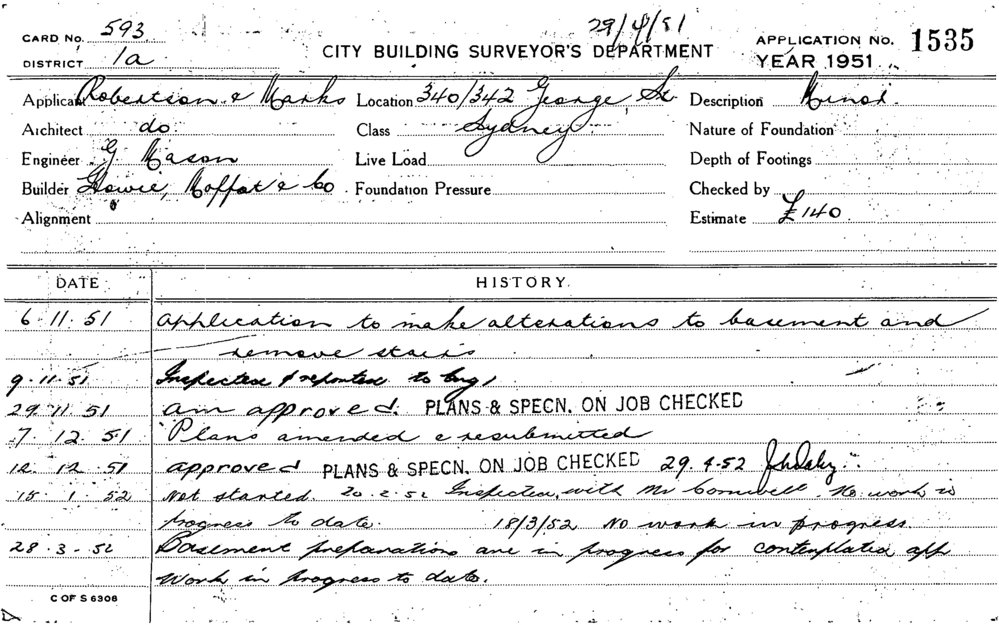 CARD No. 593 29/4/51
DISTRICT 1a CITY BUILDING SURVEYOR'S DEPARTMENT APPLICATION No. 1535
YEAR 1951
Applicant Robertson & Marks Location 340/342 George St Description Minor.
Architect do Class Sydney Nature of Foundation
Engineer G Mason Live Load Depth of Footings
Builder Howie, Moffat & Co Foundation Pressure Checked by
Alignment Estimate £140
DATE HISTORY.
6.11.51 Application to make alterations to basement and
remove stairs
9.11.51 Inspected & reported to Eng
29.11.51 am approved. PLANS & SPECN. ON JOB CHECKED
7.12.51 Plans amended & resubmitted
12.12.51 approved PLANS & SPECN. ON JOB CHECKED 29.4.52
15.1.52 Not started. 20.2.52 Inspected, with Mr Cornwell. No work in
progress to date. 18/3/52 No work in progress
28.3.52 Basement preparations are in progress for contemplated app
Work in progress to date.
C OF S 6306